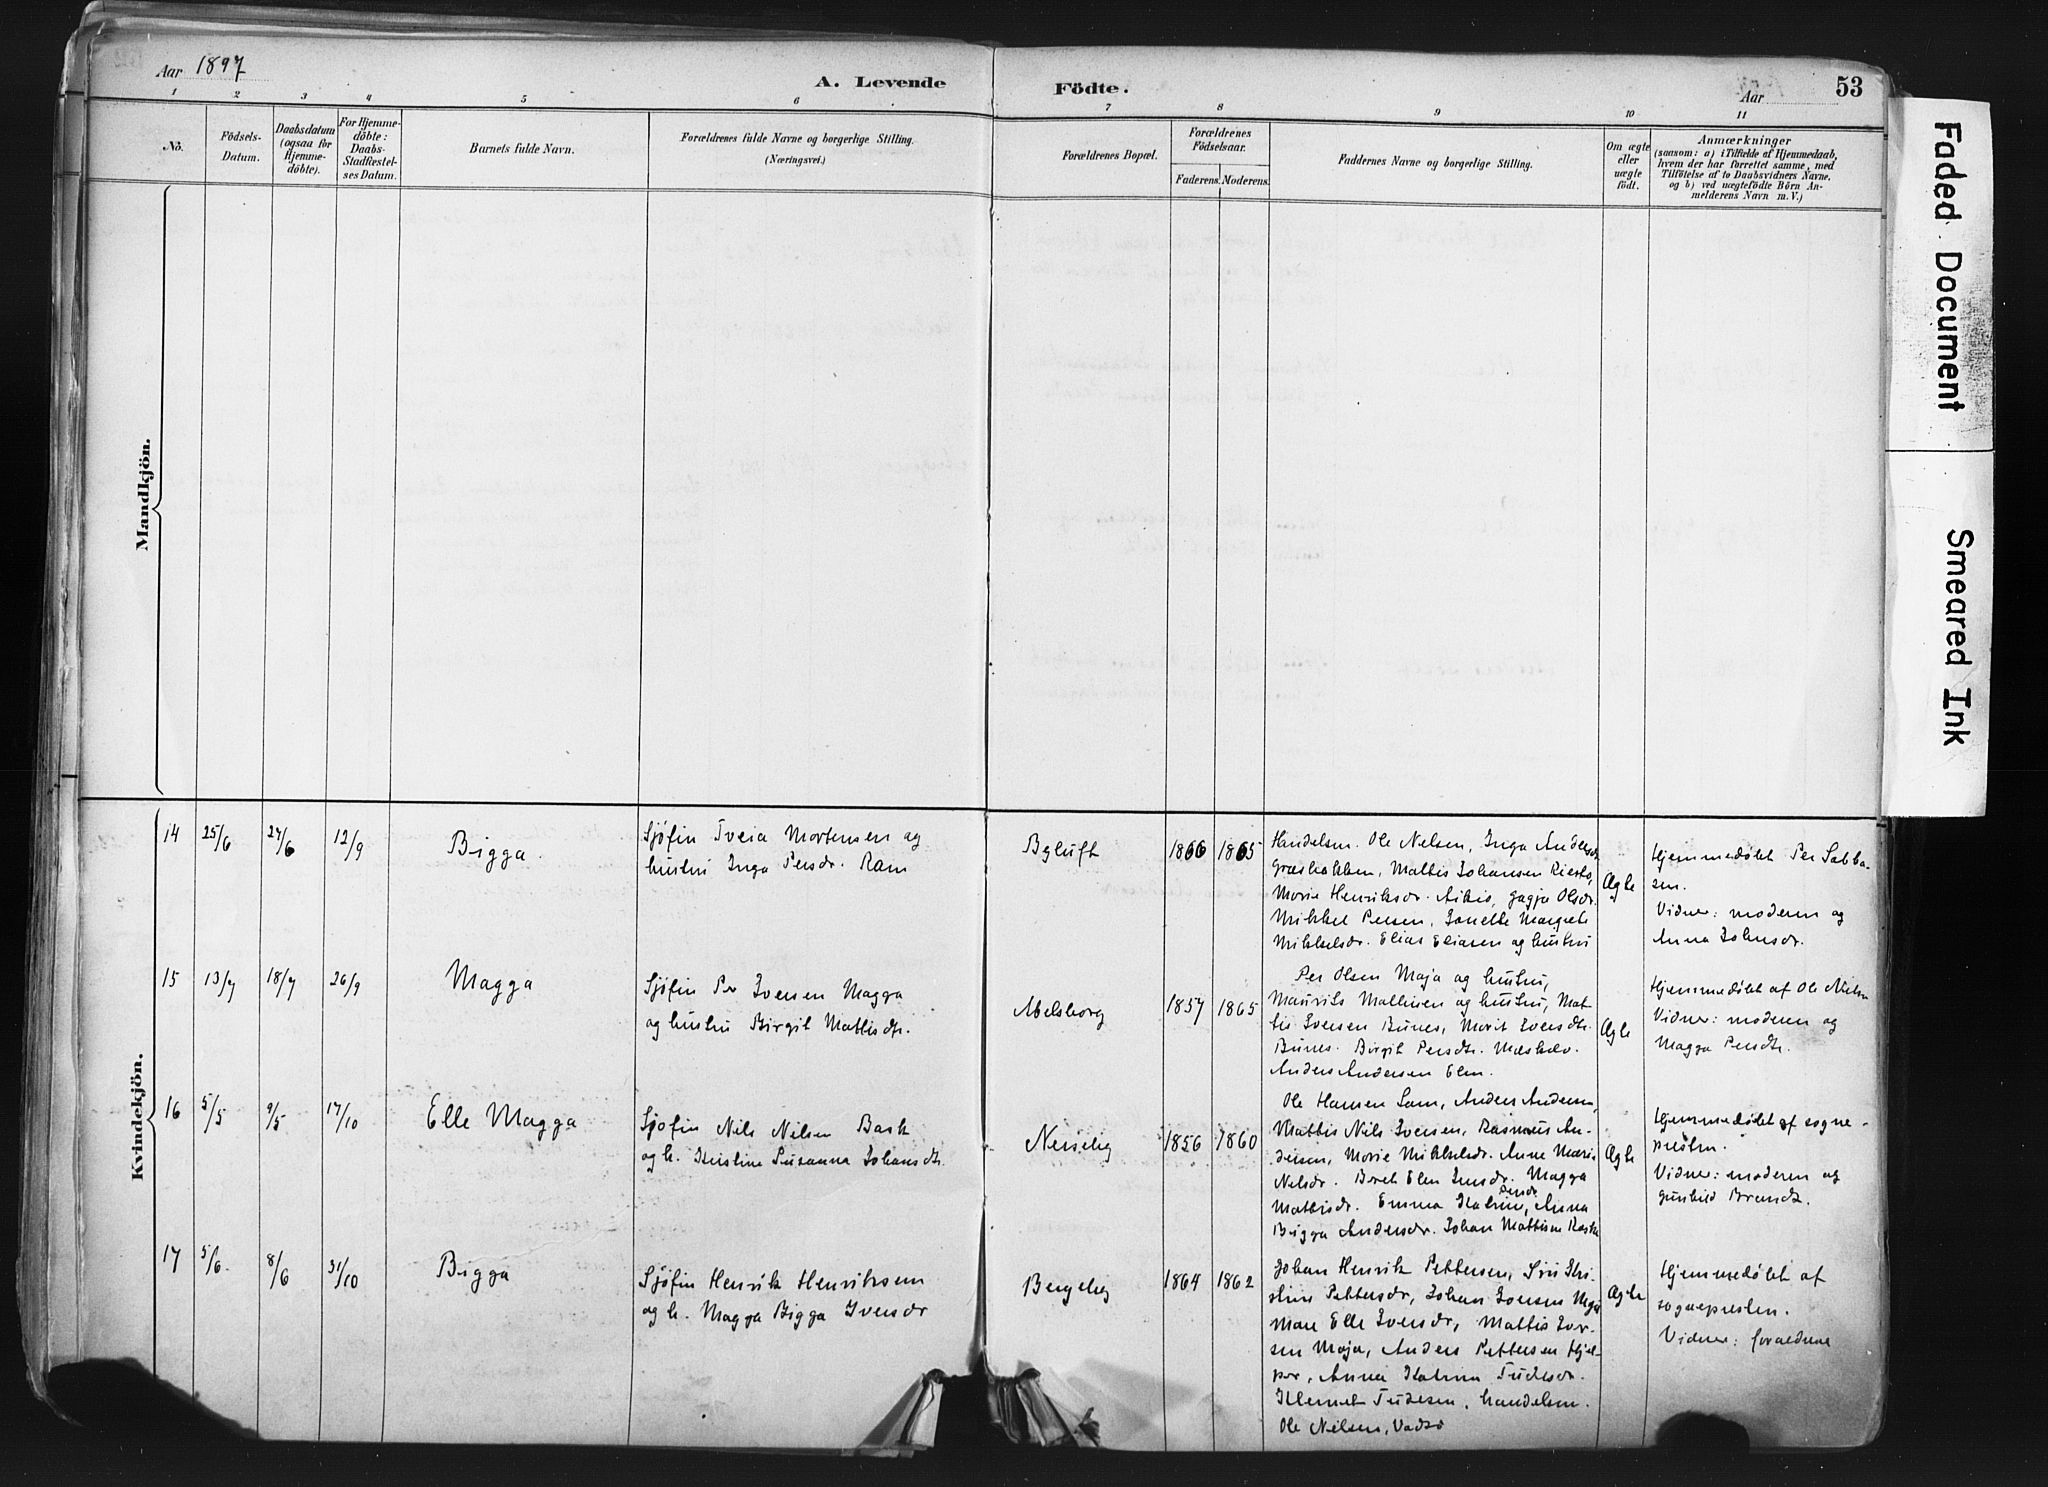 Aar 1897
A. Levende Födte.
Aar
53
1 2 3 4 5 6 7 8 9 10 11
Nö.
Födsels-
Datum.
Daabsdatum
(ogsaa for
Hjemme-
döbte).
For Hjemme-
döbte:
Daabs-
Stadfestel-
ses Datum.
Barnets fulde Navn.
Forældrenes fulde Navne og borgerlige Stilling.
(Næringsvei.)
Forældrenes Bopæl.
Forældrenes
Födselsaar.
Faderens. Moderens.
Faddernes Navne og borgerlige Stilling.
Om ægte
eller
uægte
födt.
Anmærkninger
(saasom: a) i Tilfælde af Hjemmedaab,
hvem der har forrettet samme, med
Tilföielse af to Daabsvidners Navne,
og b) ved uægtefödte Börn An-
melderens Navn m. V.)
Mandkjön.
Kvindekjön.
14 25/6 27/6 12/9
Bigga.
Sjöfin Tveia Mortensen og
hustru Inga Persdr. Ram
Byluft
1866 1865
Handelsm. Ole Nelsen, Inga Andersdr.
Græsbakken, Mattis Johansen Riesto,
Marie Henriksdr. Aikio, Gagja Olsdr.
Mikkel Persen, Jonette Margrete
Mikkelsdr. Elias Eliasen og hustru
Ægte
Hjemmedöbt Per Sabba-
sen.
Vidner: moderen og
Anna Johnsdr.
15 13/7 18/7 26/9
Magga
Sjöfin Per Iversen Magga
og hustru Birgit Mattisdtr.
Abelsborg
1857 1865
Per Olsen Maja og hustru,
Maurits Mathisen og hustru, Mat-
tis Iversen Bunes, Marit Iversdtr.
Bunes. Birgit Persdtr. Mæskelv.
Anders Andersen Elm.
Ægte
Hjemmedöbt af Ole Nilsen
Vidner: moderen og
Magga Persdtr.
16 5/5 9/5 17/10
Elle Magga
Sjöfin Nils Nilsen Bask
og h. Kristine Susanna Johansdtr.
Nesseby
1856 1860
Ole Hansen Sam, Anders Andersen,
Mattis Nils Iversen, Rasmus An-
dersen, Marie Mikkelsdr. Anne Marie
Nelsdr. Beret Elen Jensdr. Magga
Mattisdr. Emma Katrine Persdr, Anna
Bigga Andersdr. Johan Mattisen Raske
Ægte
Hjemmedöbt af sogne-
presten.
Vidner: moderen og
Gunhild Brandt.
17 5/6. 8/6 31/10
Bigga
Sjöfin Henrik Henriksen
og h. Magga Bigga Iversdr
Bergeby
1864 1862
Johan Henrik Pettersen, Siri Kri-
stine Pettersdr, Johan Iversen Maja
Mari Elle Iversdr, Mattis Iver-
sen Maja, Anders Pettersen Hjel-
per, Anna Katrina Tudesdr.
Klemet Tudesen, handelsm.
Ole Nelsen, Vadsö
Ægte
Hjemmedöbt af
sognepresten.
Vidner: forældrene
Faded Document
Smeared Ink